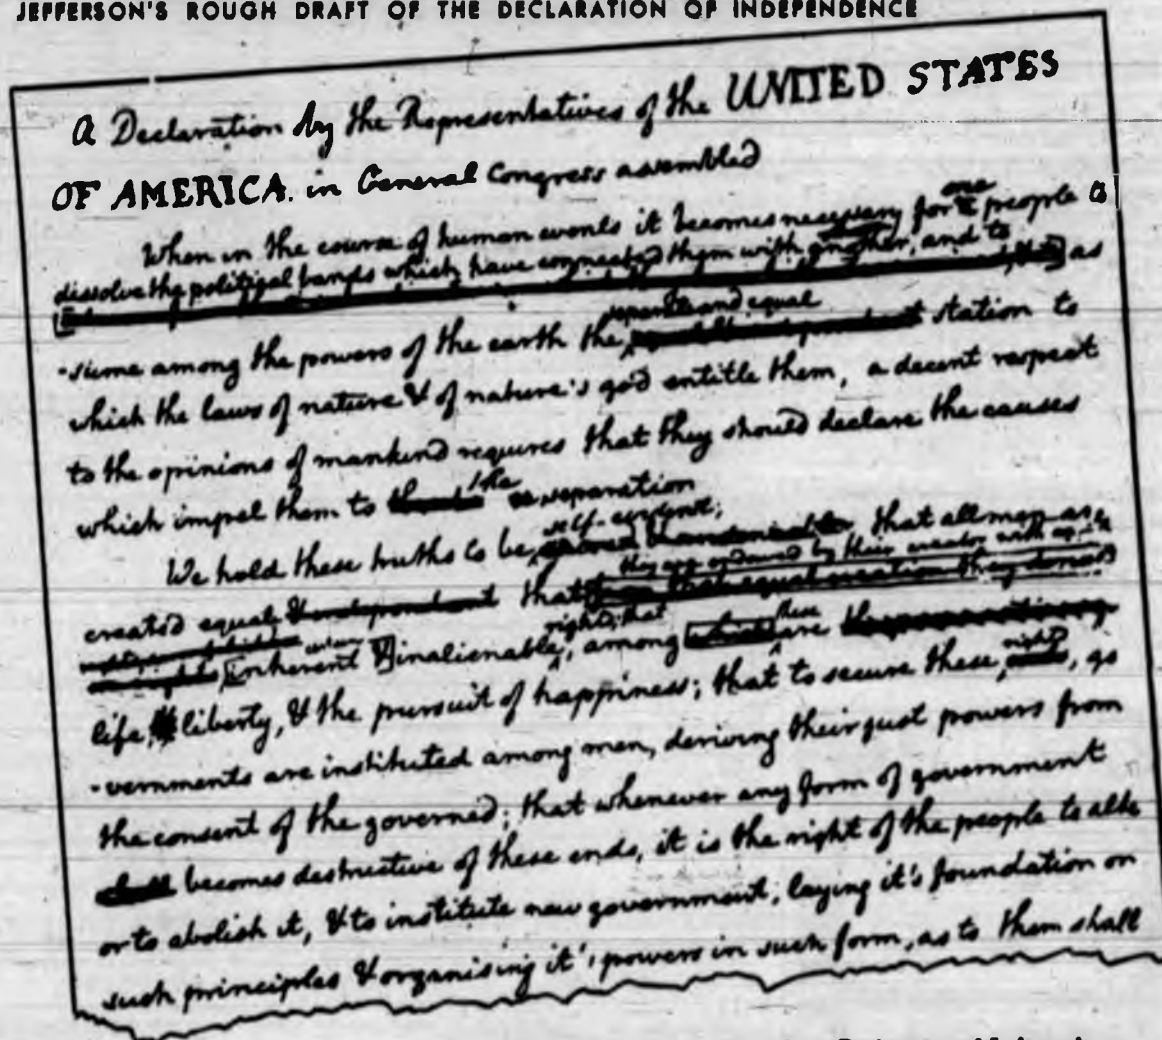 JEFFERSON'S ROUGH DRAFT OF THE DECLARATION OF INDEPENDENCE
A Declaration by the Representatives of the UNITED STATES
OF AMERICA. in General Congress assembled
one
When in the course of human events it becomes necessary for people
dissolve the political bands which have connected them with another, and to
as
separate and equal
-sume among the powers of the earth the station to
which the laws of nature & of nature's god entitle them, a decent respect
to the opinions of mankind requires that they should declare the causes
the
which impel them to separation
self-evident;
We hold these truths to be that all men are
they are endowed by their creator with
created equal that
rights; that these
inherent & inalienable, among which are
life, liberty, & the pursuit of happiness; that to secure these, go
-vernments are instituted among men, deriving their just powers from
the consent of the governed; that whenever any form of government
shall becomes destructive of these ends, it is the right of the people to alte
or to abolish it, & to institute new government, laying it's foundation on
such principles & organising it's powers in such form, as to them shall